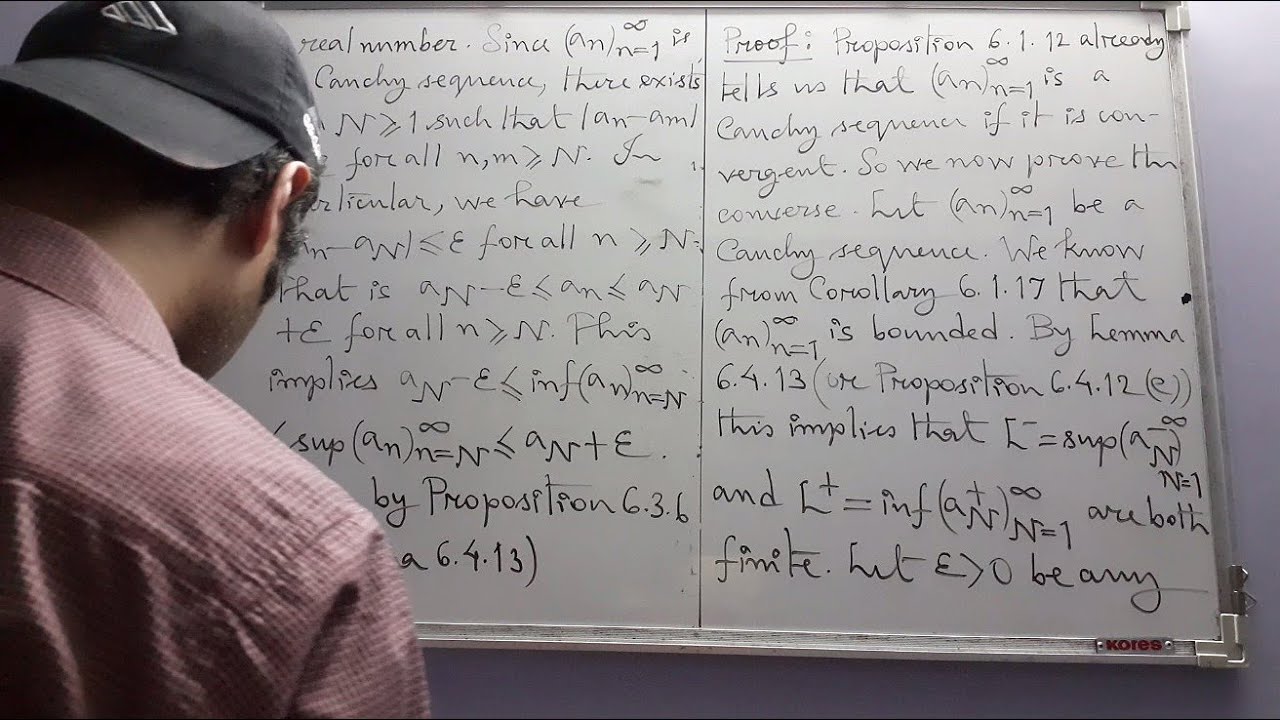 real number. Since (an)∞n=1 is
Cauchy sequence, there exists
N ⩾ 1 such that |an-am|
for all n,m ⩾ N. In
we have
⩽ ε for all n ⩾ N.
That is aN-ε ⩽ an ⩽ aN
+ε for all n ⩾ N. This
implies aN-ε ⩽ inf(an)∞n=N
sup(an)∞n=N ⩽ aN+ε.
by Proposition 6.3.6
6.4.13)
Proof: Proposition 6.1.12 already
tells us that (an)∞n=1 is a
Cauchy sequence if it is con-
vergent. So we now prove the
converse. Let (an)∞n=1 be a
Cauchy sequence. We know
from Corollary 6.1.17 that
(an)∞n=1 is bounded. By Lemma
6.4.13 (or Proposition 6.4.12 (e))
this implies that L⁻ = sup(a⁻N)∞N=1
and L⁺ = inf(a⁺N)∞N=1 are both
finite. Let ε>0 be any
KORES